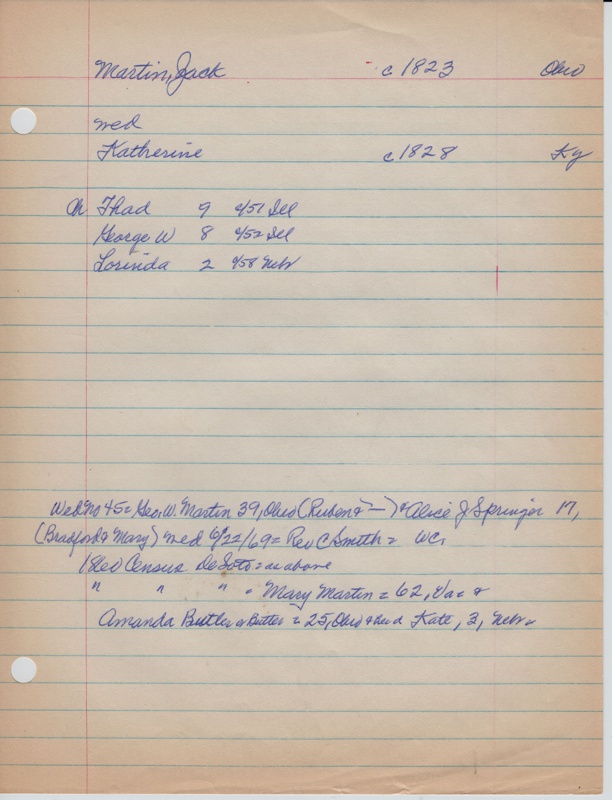 Martin, Jack c 1823 Ohio
wed
Katherine c 1828 Ky
Ch Thad 9 c/51 Ill
George W 8 c/52 Ill
Lorinda 2 c/58 Nebr
Wed No 45 = Geo. W. Martin 39, Ohio (Ruben & —) & Alice J Springer 17,
(Bradford & Mary) wed 6/22/69 = Rev C Smith = WC.
1860 Census DeSoto = as above
" " " " Mary Martin = 62, Va = &
Amanda Butler or Butter = 25, Ohio & her d Kate, 3, Nebr.